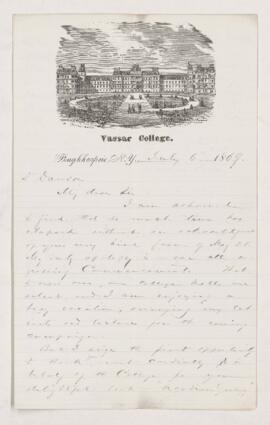 Vassar College.
Poughkeepsie, N.Y. July 6 1869.
My dear Sir
I am ashamed
to find that so much time has
elapsed without an acknowledgment
of your very kind favor of May 26
My only apology is our
pressing Commencement. That
is now over, our College halls are
silent, and I am enjoying a
busy vacation, arranging my
and lectures for the coming
campaign.
But I seize the first opportunity
to thank you most cordially in
behalf of the College for your
delightful book